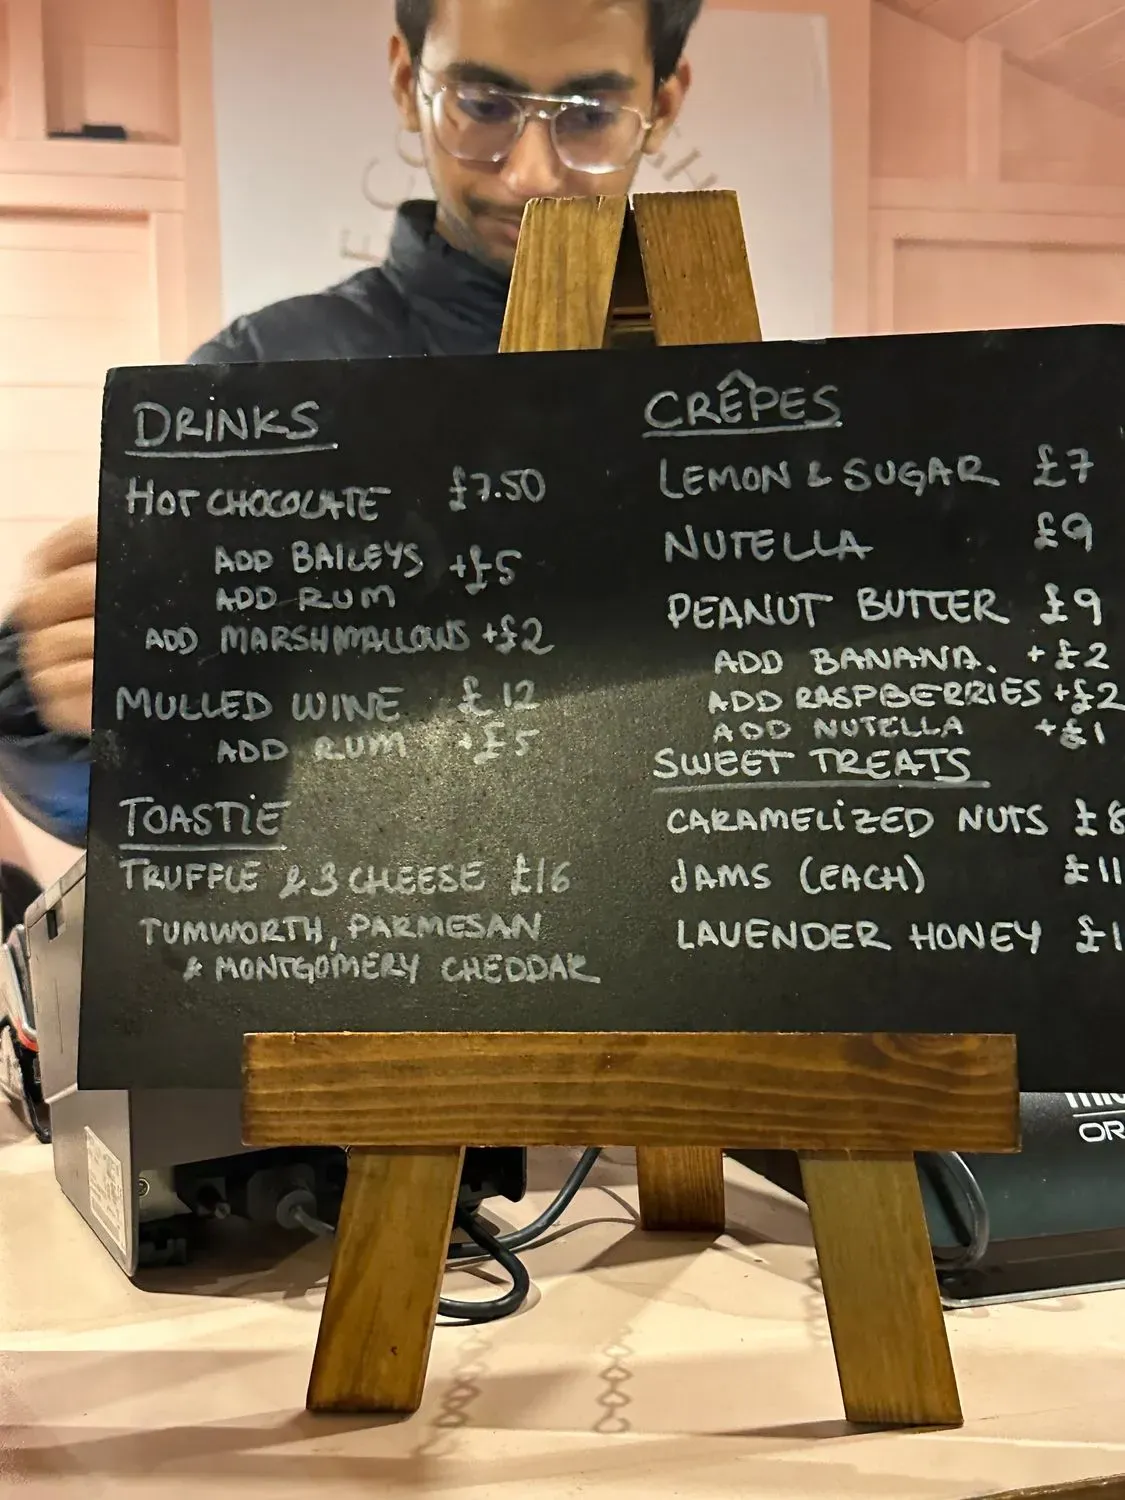 DRINKS
HOT CHOCOLATE £7.50
ADD BAILEYS +£5
ADD RUM
ADD MARSHMALLOWS +£2
MULLED WINE £12
ADD RUM +£5
TOASTIE
TRUFFLE & 3 CHEESE £16
TUMWORTH, PARMESAN
& MONTGOMERY CHEDDAR
CRÊPES
LEMON & SUGAR £7
NUTELLA £9
PEANUT BUTTER £9
ADD BANANA. +£2
ADD RASPBERRIES +£2
ADD NUTELLA +£1
SWEET TREATS
CARAMELIZED NUTS £8
JAMS (EACH) £11
LAVENDER HONEY £1